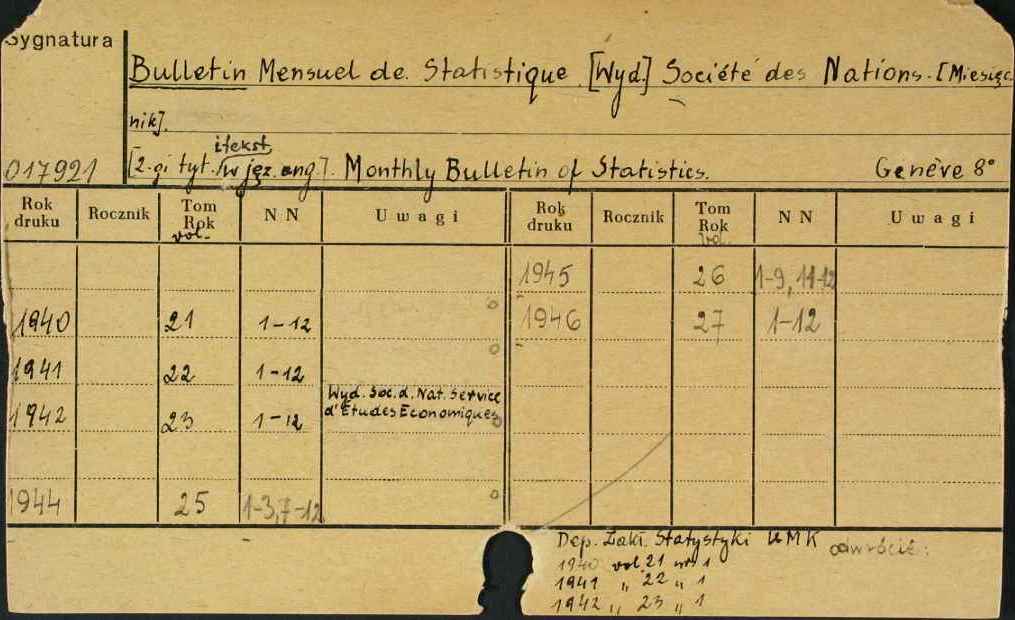 Sygnatura
Bulletin Mensuel de Statistique. [Wyd.] Société des Nations. [Miesięc
nik].
i tekst
017921 [2-gi tyt. w jęz. ang.]. Monthly Bulletin of Statistics. Genève 8°
Rok druku Rocznik Tom Rok vol. NN Uwagi Rok druku Rocznik Tom Rok vol. NN Uwagi
1945 26 1-9, 11-12
1940 21 1-12 1946 27 1-12
1941 22 1-12
Wyd. Soc. d. Nat. Service
1942 23 1-12 d'Etudes Economiques
1944 25 1-3, 7-12
Dep. Zakł. Statystyki UMK odwrócić:
1940 vol. 21 nr 1
1941 " 22 " 1
1942 " 23 " 1